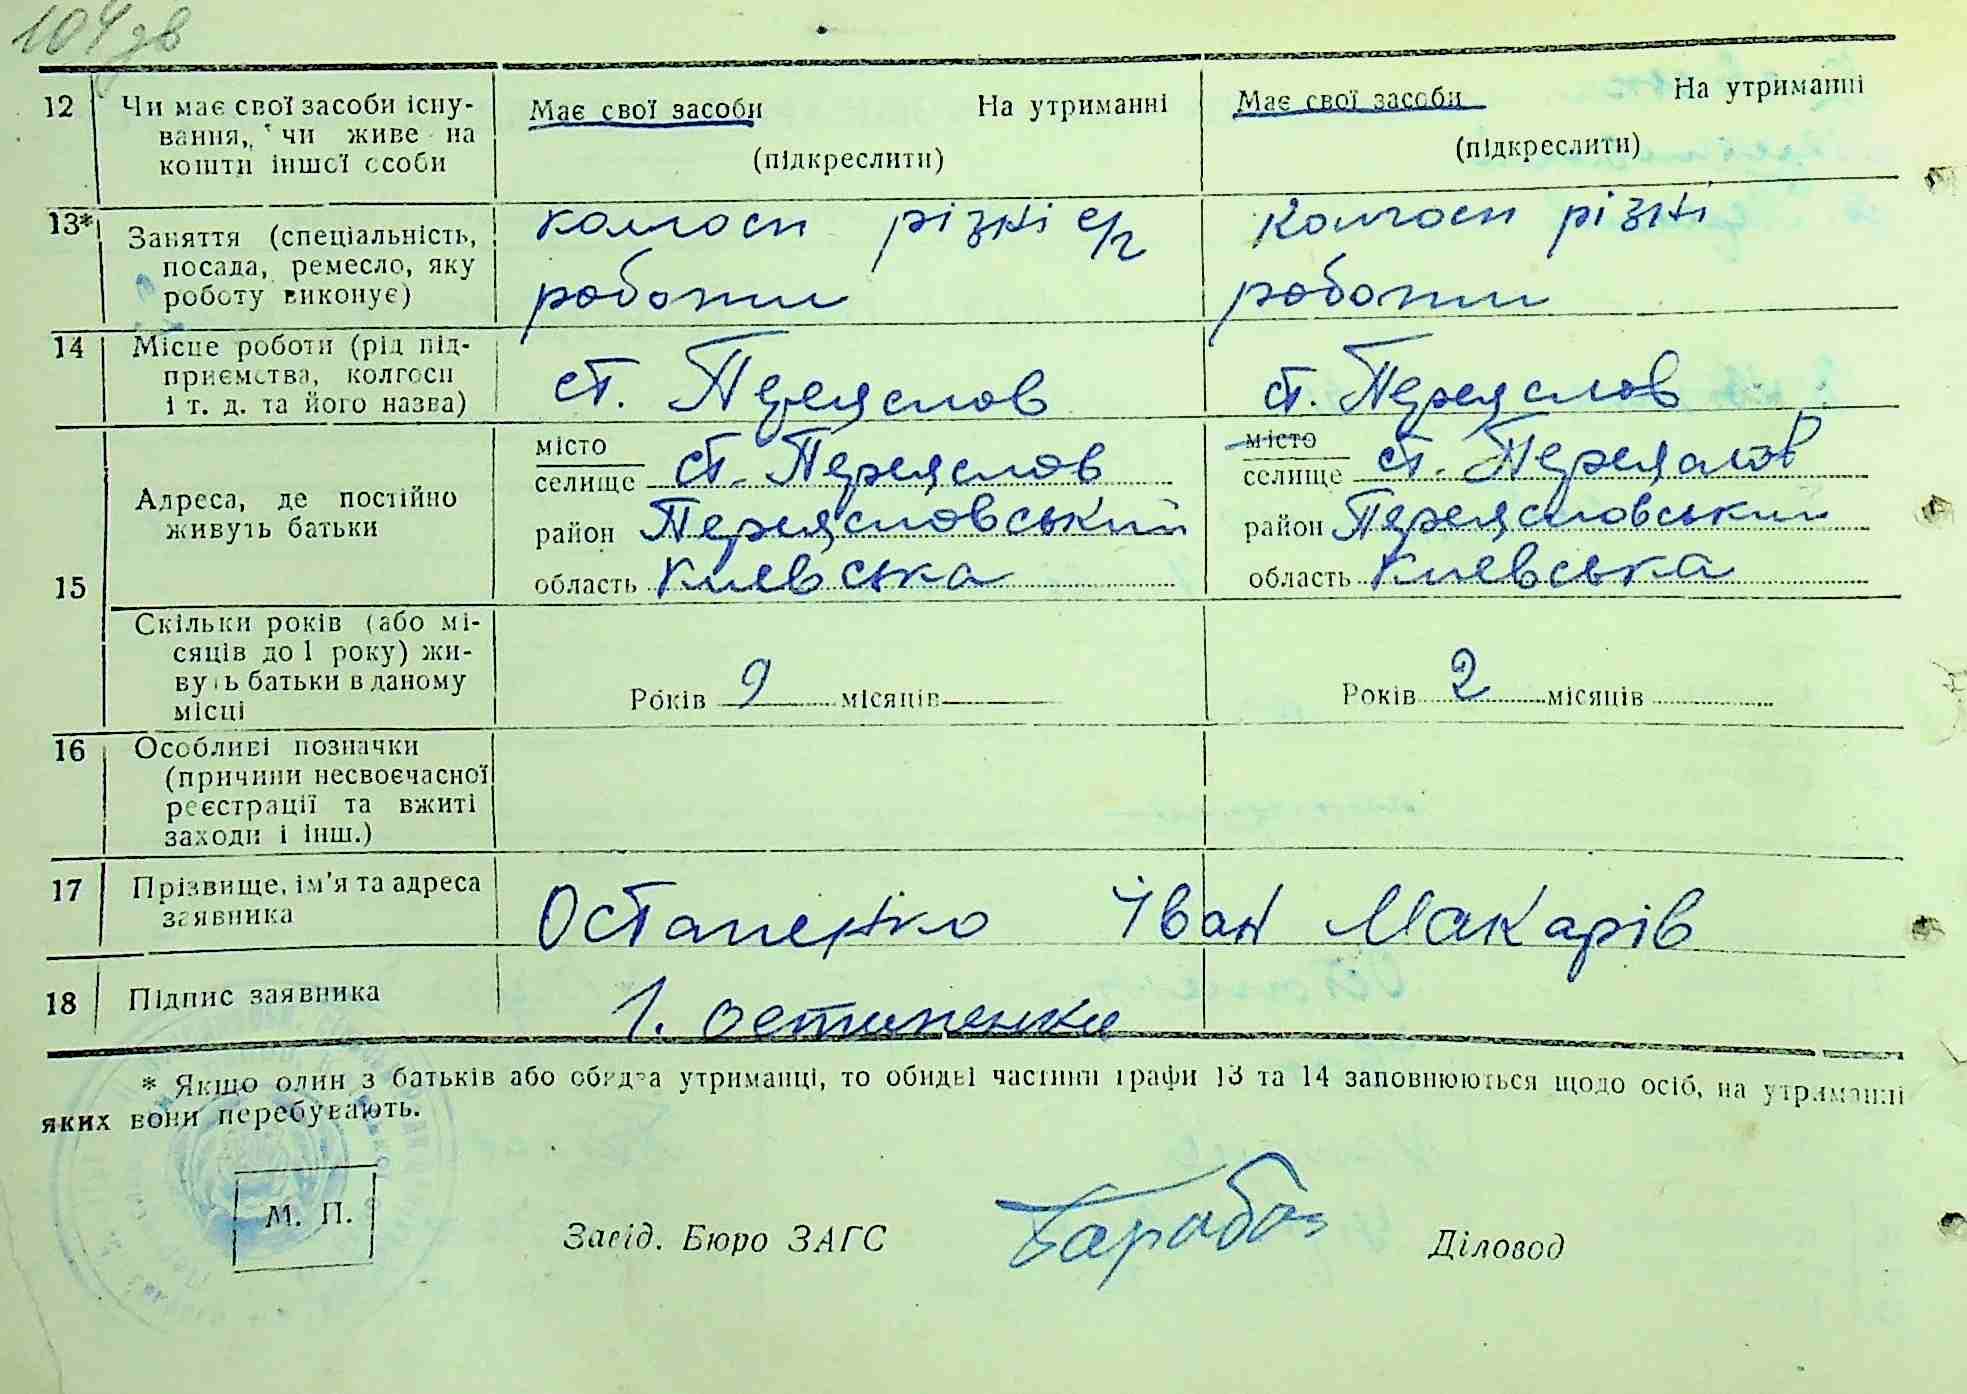 104 зв
12 Чи має свої засоби існу-
вання, чи живе на
кошти іншої особи
Має свої засоби На утриманні
(підкреслити)
Має свої засоби На утриманні
(підкреслити)
13* Заняття (спеціальність,
посада, ремесло, яку
роботу виконує)
колгосп різні с/г
роботи
колгосп різні
роботи
14 Місце роботи (рід під-
приємства, колгосп
і т. д. та його назва)
ст. Переяслов
ст. Переяслов
15 Адреса, де постійно
живуть батьки
місто
селище ст. Переяслов
район Переясловський
область Киевська
місто
селище ст. Переяслов
район Переясловський
область Киевська
Скільки років (або мі-
сяців до 1 року) жи-
вуть батьки в даному
місці
Років 9 місяців
Років 2 місяців
16 Особливі позначки
(причини несвоєчасної
реєстрації та вжиті
заходи і інш.)
17 Прізвище, ім'я та адреса
заявника
Остапенко Іван Макарів
18 Підпис заявника
І. Остапенко
* Якщо один з батьків або обидва утриманці, то обидві частини графи 13 та 14 заповнюються щодо осіб, на утриманні
яких вони перебувають.
М. П.
Завід. Бюро ЗАГС
Діловод